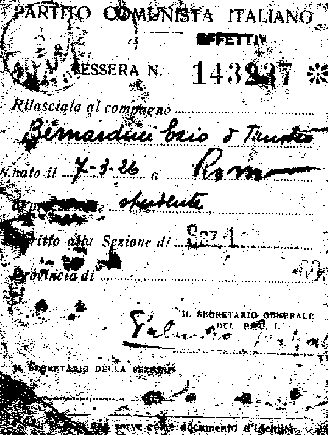 PARTITO COMUNISTA ITALIANO
EFFETTIV
TESSERA N. 143237
Rilasciata al compagno
Bernardini Ezio di
Nato il 7-3-26 a Roma
studente
Iscritto alla Sezione di Sez. 1
Provincia di
IL SEGRETARIO GENERALE
DEL P. C. I.
IL SEGRETARIO DELLA SEZIONE
serve come documento d'identità